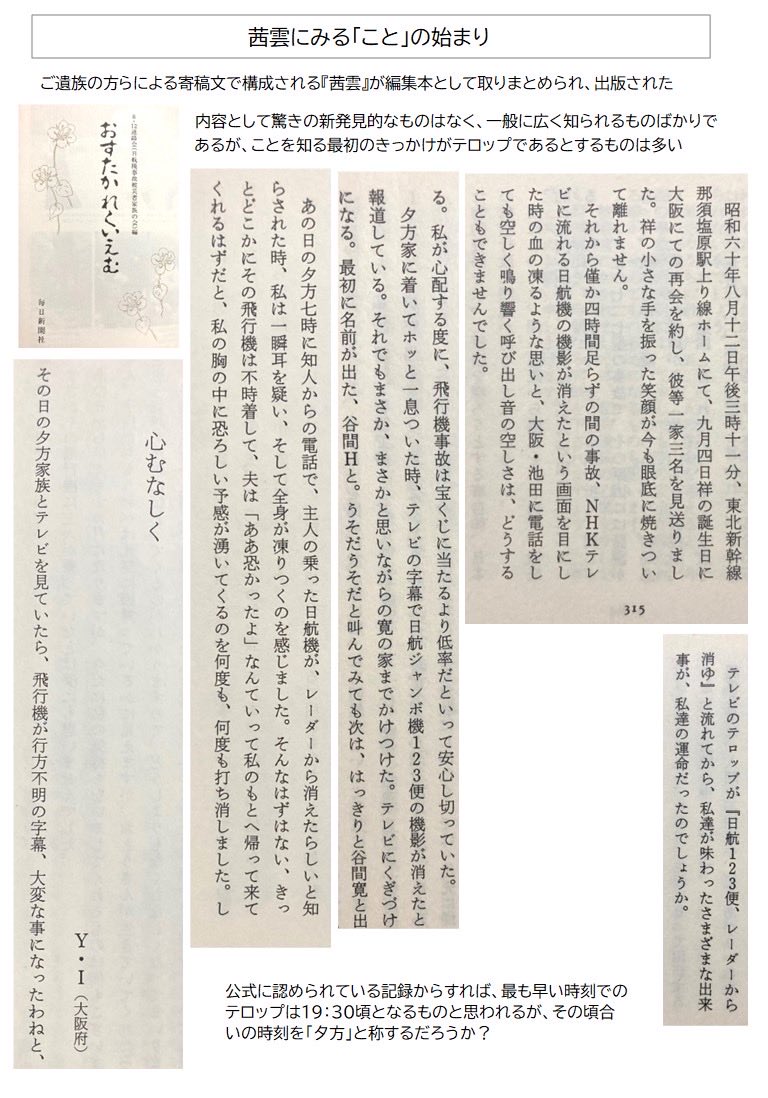 茜雲にみる｢こと｣の始まり
ご遺族の方らによる寄稿文で構成される『茜雲』が編集本として取りまとめられ、出版された
内容として驚きの新発見的なものはなく、一般に広く知られるものばかりで
あるが、ことを知る最初のきっかけがテロップであるとするものは多い
8・12連絡会(日航機事故被災者家族の会)編
おすたかれくいえむ
毎日新聞社
昭和六十年八月十二日午後三時十一分、東北新幹線
那須塩原駅上り線ホームにて、九月四日祥の誕生日に
大阪にての再会を約し、彼等一家三名を見送りまし
た。祥の小さな手を振った笑顔が今も眼底に焼きつい
て離れません。
それから僅か四時間足らずの間の事故、NHKテレ
ビに流れる日航機の機影が消えたという画面を目にし
た時の血の凍るような思いと、大阪・池田に電話をし
ても空しく鳴り響く呼び出し音の空しさは、どうする
こともできませんでした。
315
る。私が心配する度に、飛行機事故は宝くじに当たるより低率だといって安心し切っていた。
夕方家に着いてホッと一息ついた時、テレビの字幕で日航ジャンボ機123便の機影が消えたと
報道している。それでもまさか、まさかと思いながらの寛の家までかけつけた。テレビにくぎづけ
になる。最初に名前が出た、谷間Hと。うそだうそだと叫んでみても次は、はっきりと谷間寛と出
あの日の夕方七時に知人からの電話で、主人の乗った日航機が、レーダーから消えたらしいと知
らされた時、私は一瞬耳を疑い、そして全身が凍りつくのを感じました。そんなはずはない、きっ
とどこかにその飛行機は不時着して、夫は「ああ恐かったよ」なんていって私のもとへ帰って来て
くれるはずだと、私の胸の中に恐ろしい予感が湧いてくるのを何度も、何度も打ち消しました。し
心むなしく
Y・I(大阪府)
その日の夕方家族とテレビを見ていたら、飛行機が行方不明の字幕、大変な事になったわねと、
テレビのテロップが『日航123便、レーダーから
消ゆ』と流れてから、私達が味わったさまざまな出来
事が、私達の運命だったのでしょうか。
公式に認められている記録からすれば、最も早い時刻での
テロップは19:30頃となるものと思われるが、その頃合
いの時刻を｢夕方｣と称するだろうか?